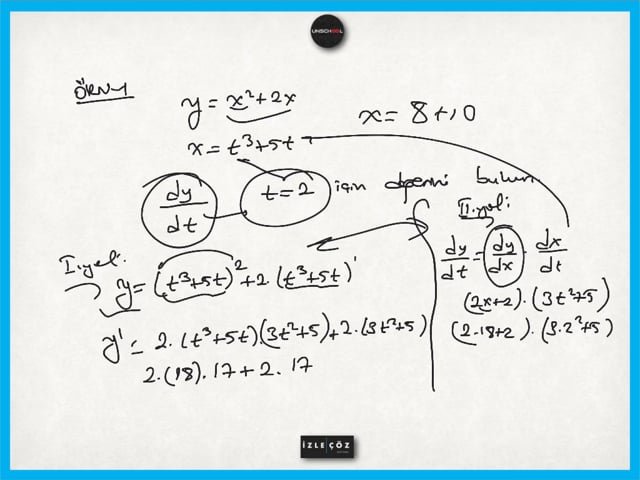 UNSCHOOL
ÖRNEK
y = x² + 2x
x = 8 + 10
x = t³ + 5t
dy/dt t = 2 için değerini bulun
I. yol:
y = (t³ + 5t)² + 2.(t³ + 5t)'
y' = 2.(t³ + 5t)(3t² + 5) + 2.(3t² + 5)
2.(18).17 + 2.17
II. yol:
dy/dt = dy/dx . dx/dt
(2x + 2).(3t² + 5)
(2.18 + 2).(3.2² + 5)
İZLE ÇÖZ